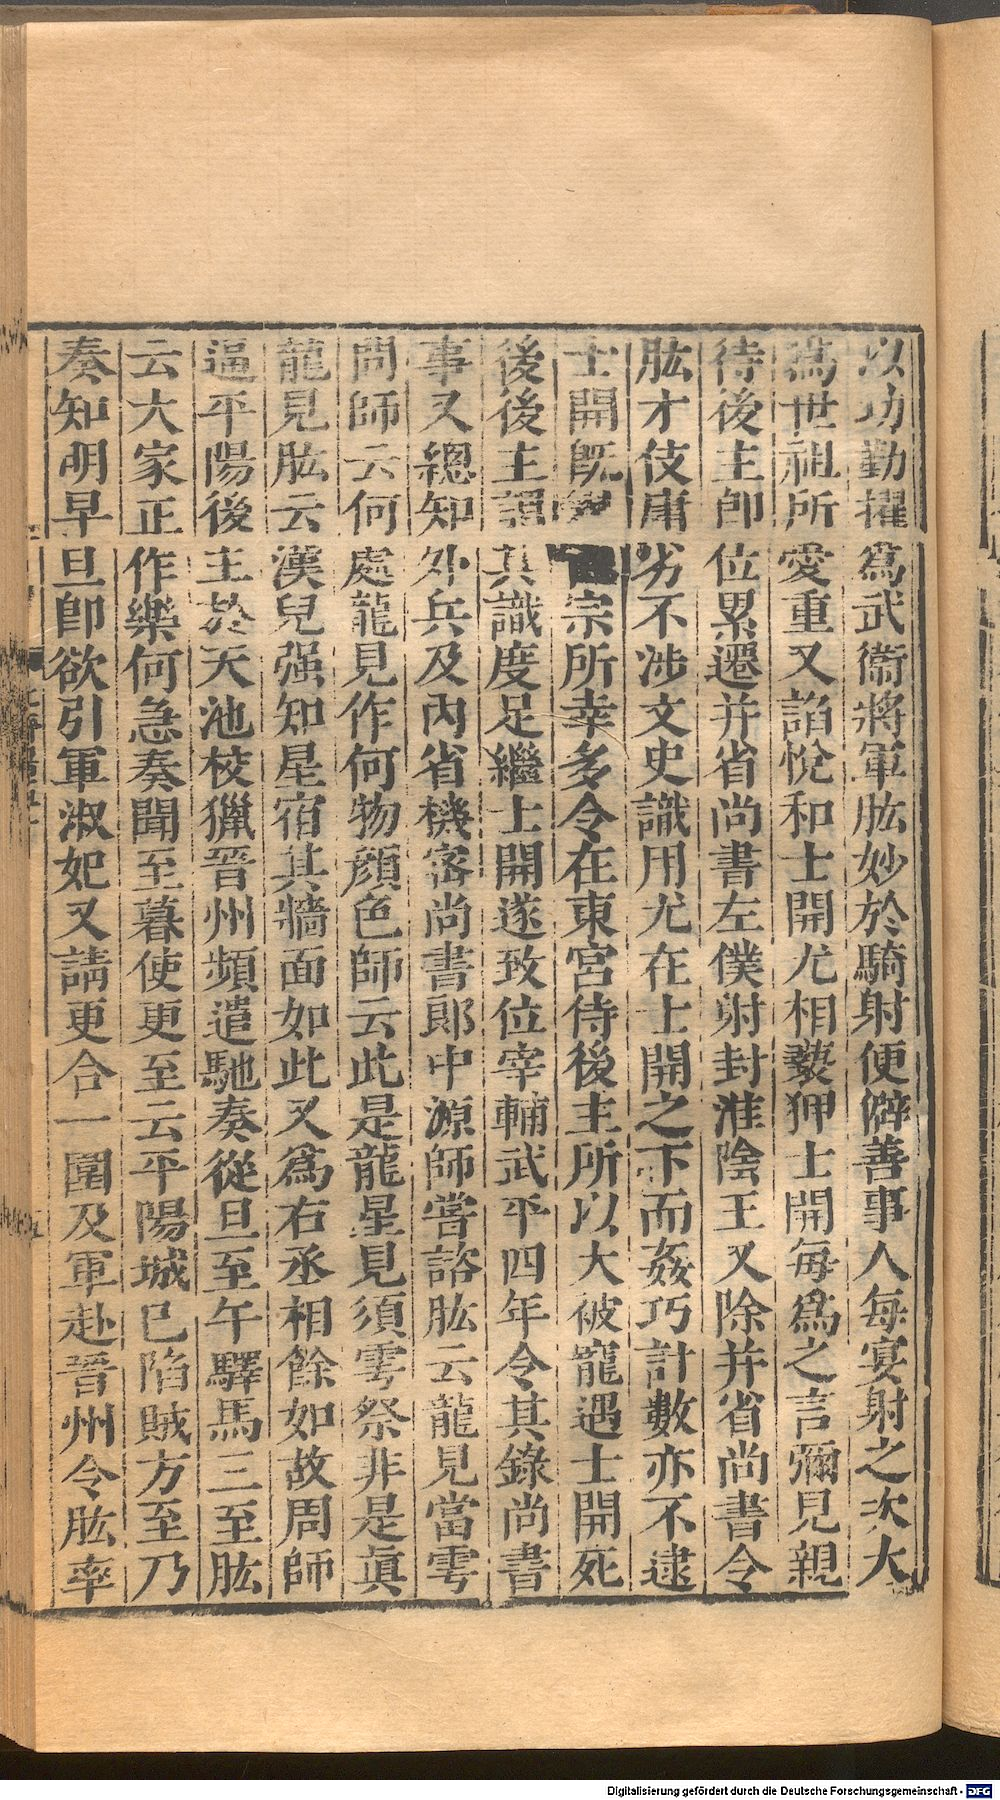 以功勤擢爲武衞將軍肱妙於騎射便僻善事人每宴射之次大
爲世祖所愛重又諂悅和士開尤相䙝狎士開每爲之言彌見親
待後主卽位累遷并省尚書左僕射封淮隂王又除并省尚書令
肱才伎庸劣不涉文史識用尤在士開之下而姦巧計數亦不逮
士開旣宗所幸多令在東宮侍後主所以大被寵遇士開死
後後主謂其識度足繼士開遂致位宰輔武平四年令其錄尚書
事又總知外兵及內省機密尚書郞中源師嘗諮肱云龍見當雩
問師云何處龍見作何物顏色師云此是龍星見須雩祭非是眞
龍見肱云漢兒强知星宿其牆面如此又爲右丞相餘如故周師
逼平陽後主於天池校獵晉州頻遣馳奏從旦至午驛馬三至肱
云大家正作樂何急奏聞至暮使更至云平陽城已陷賊方至乃
奏知明早旦卽欲引軍淑妃又請更合一圍及軍赴晉州令肱率
Digitalisierung gefördert durch die Deutsche Forschungsgemeinschaft - DFG